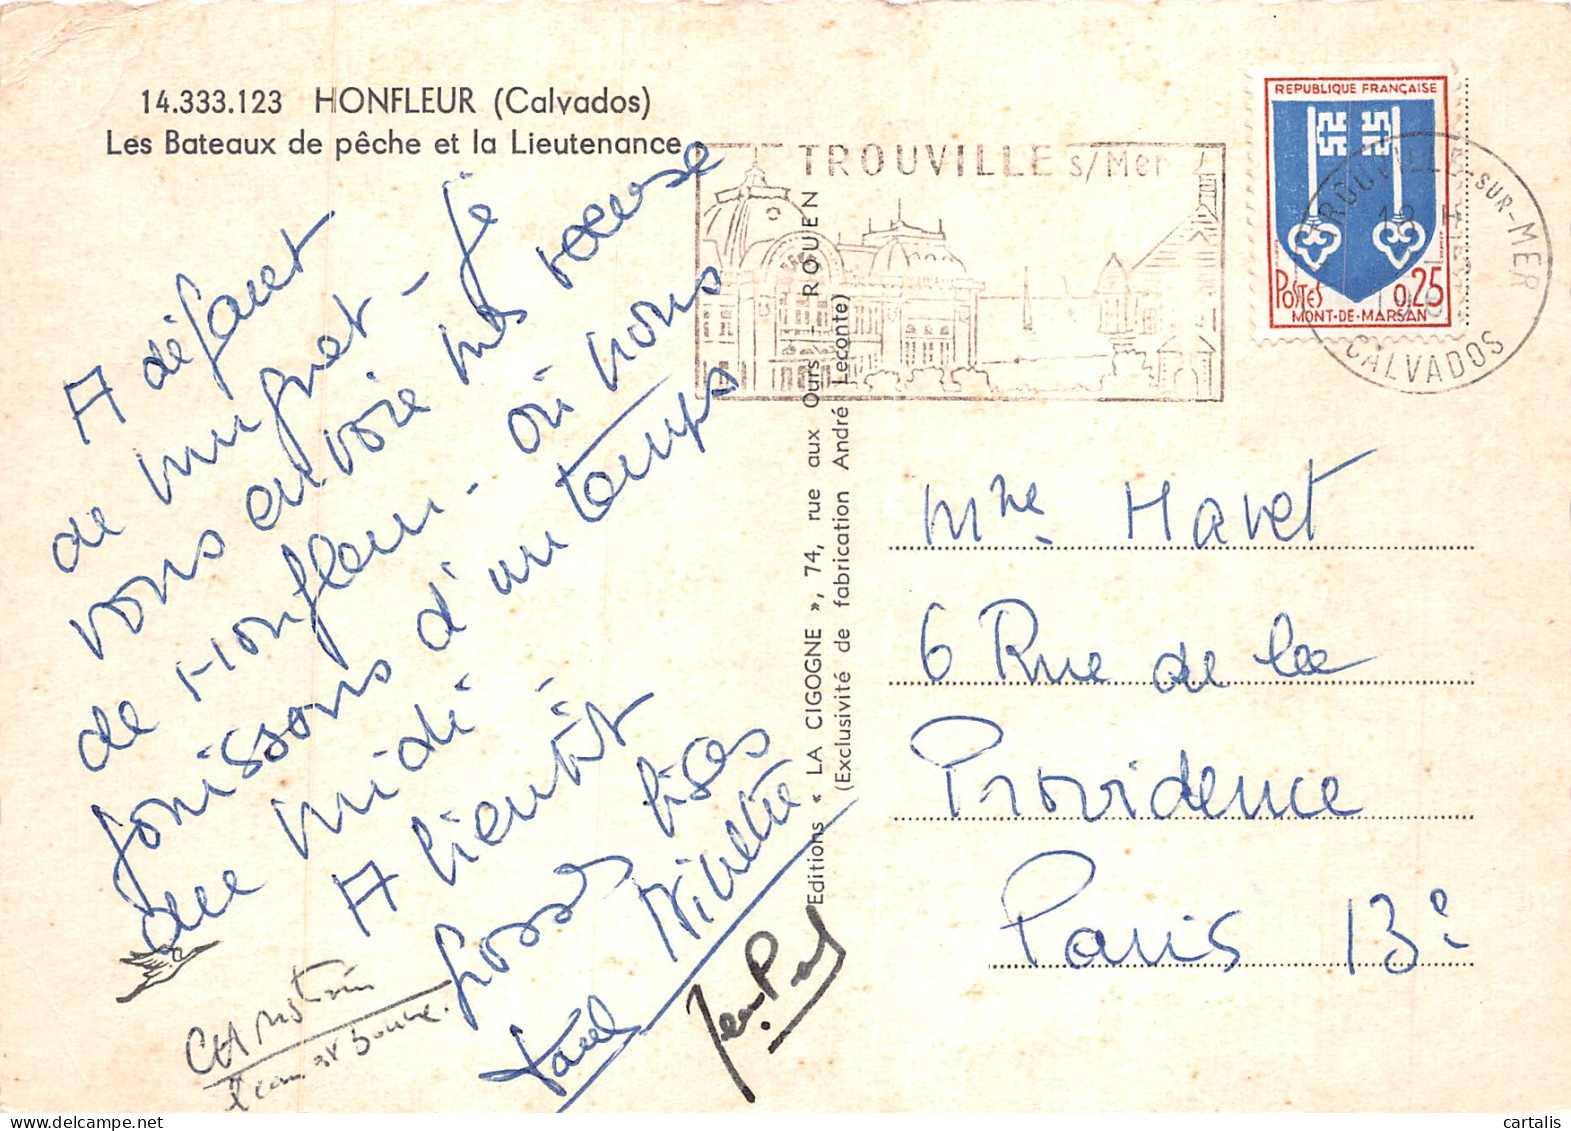 14.333.123 HONFLEUR (Calvados)
Les Bateaux de pêche et la Lieutenance
TROUVILLE s/Mer
REPUBLIQUE FRANÇAISE
POSTES 0,25
MONT-DE-MARSAN
TROUVILLE-SUR-MER
CALVADOS
A défaut
de muguet - je
vous envoie mes
de Honfleur - où nous
jouissons d'un temps
du midi
A bientôt
grosses bises
Ninette
Paul
Jean-Paul
CHRISTIAN
l'eau est bonne.
Editions « LA CIGOGNE », 74, rue aux Ours ROUEN
(Exclusivité de fabrication André Leconte)
Mme Havet
6 Rue de la
Providence
Paris 13e
cartalis
delcampe.net